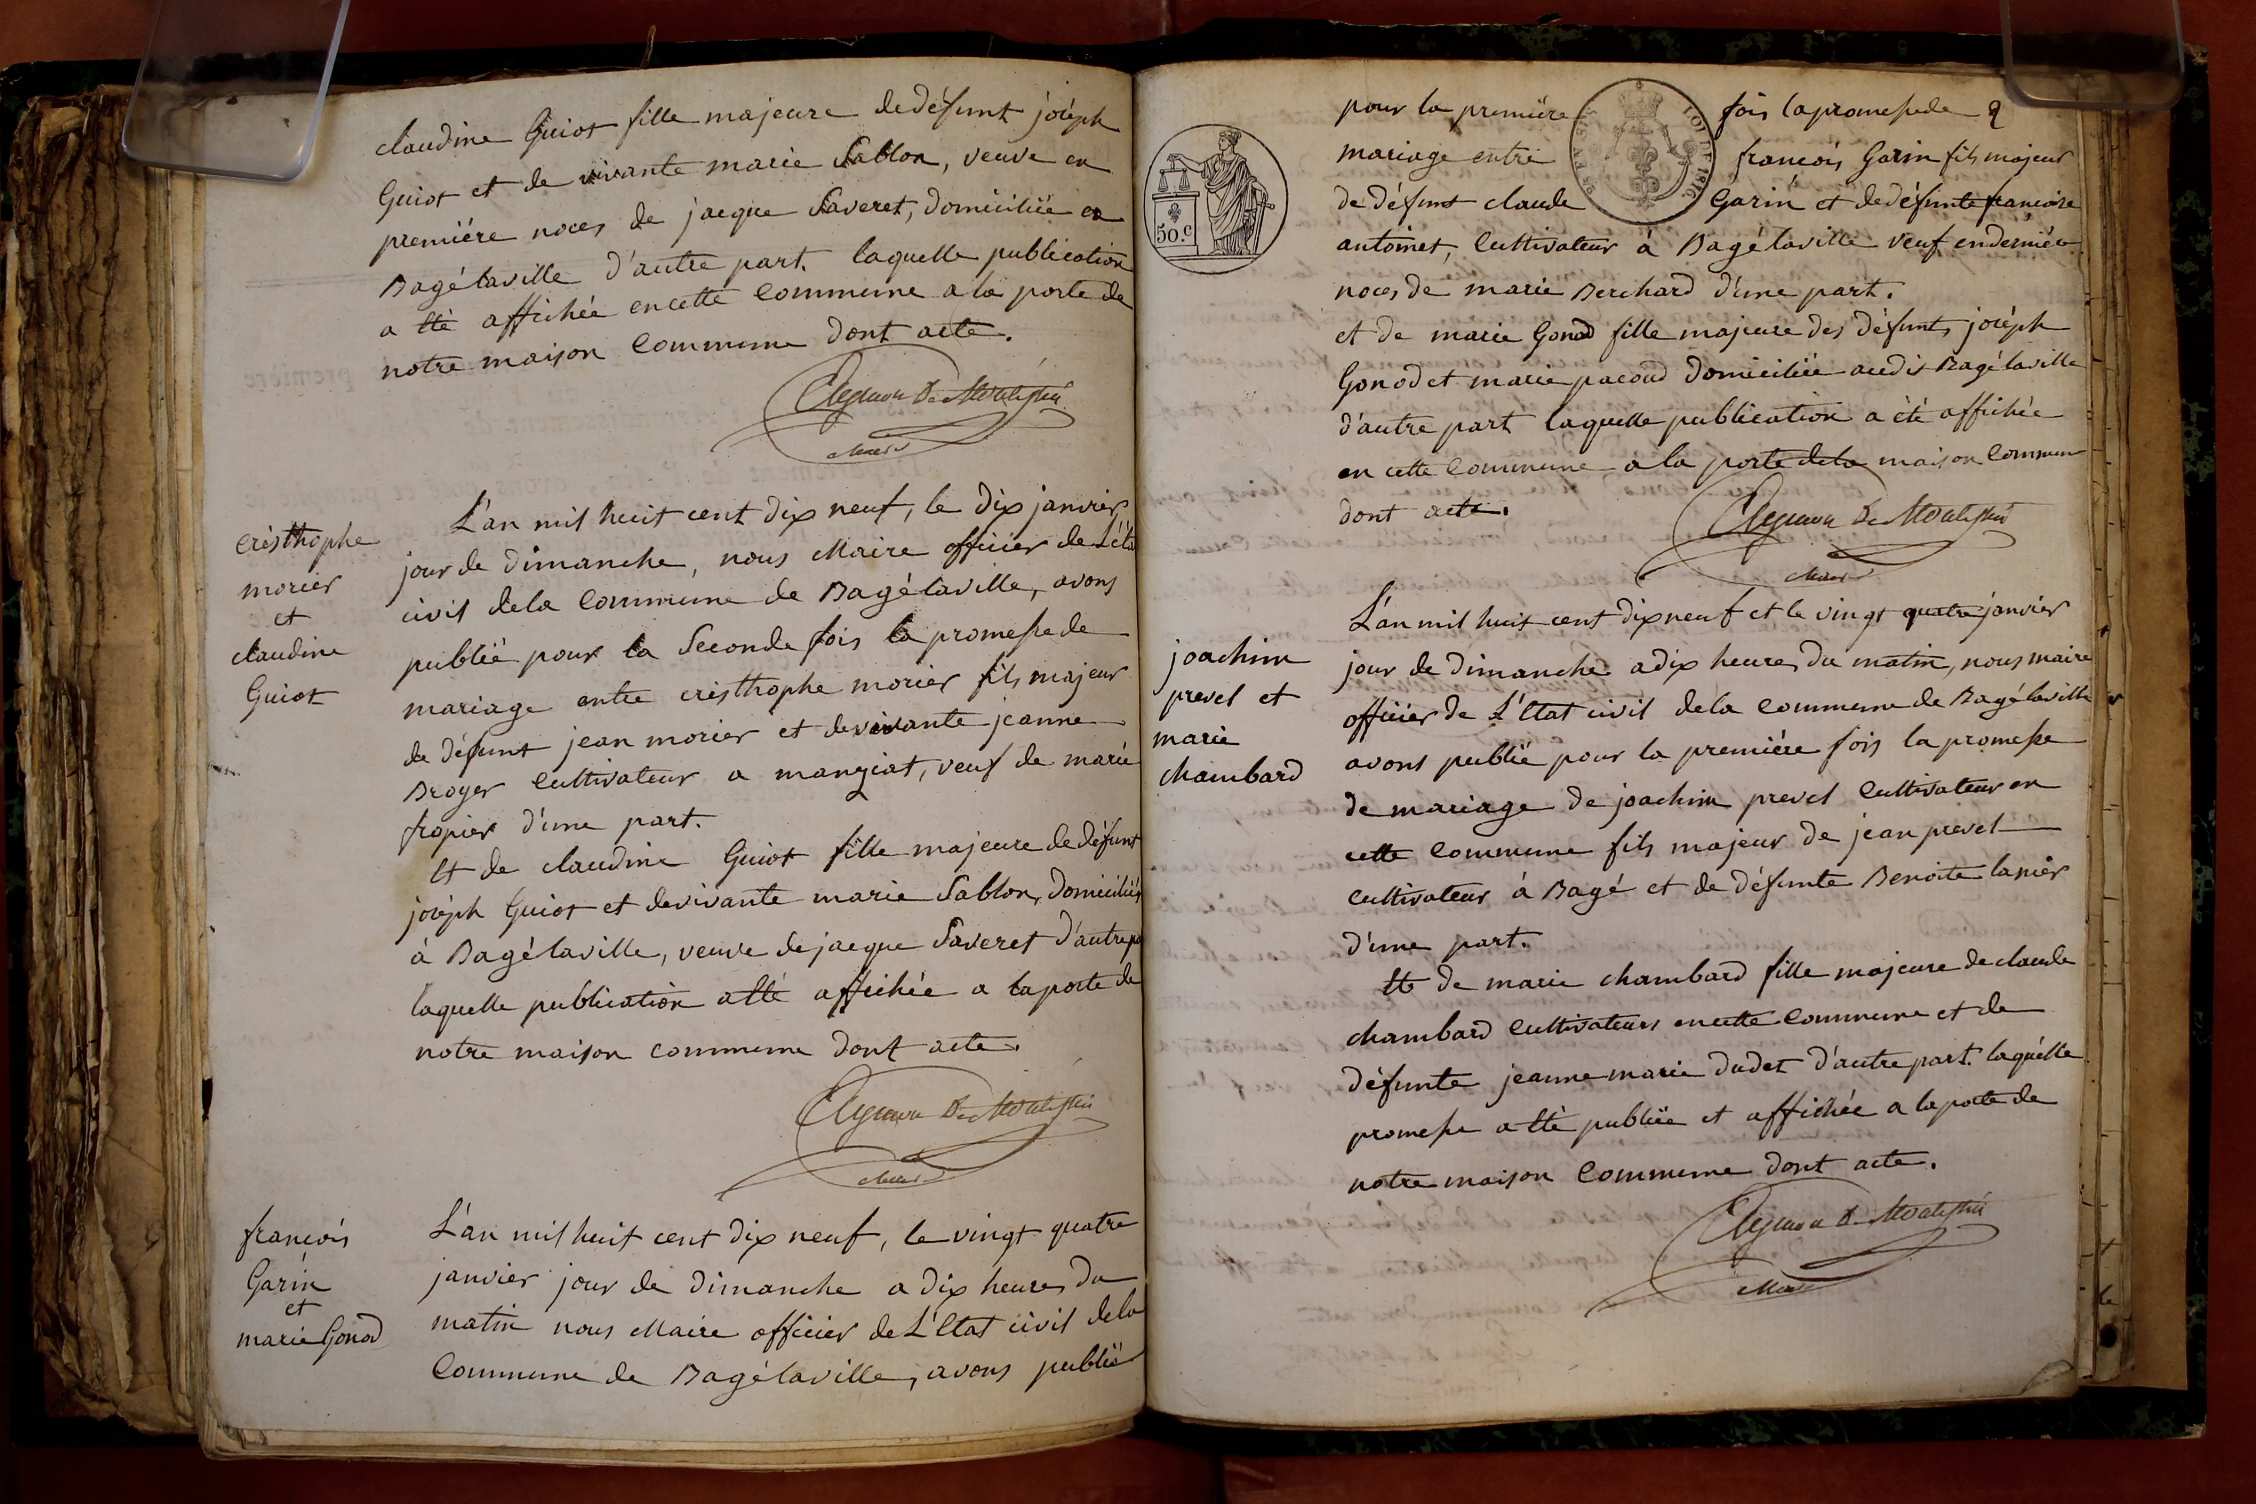 claudine Guiot fille majeure de défunt joséph
Guiot et de vivante marie Sablon, veuve en
premiére noces de jacque Saveret, domiciliée en
Bagélaville d'autre part. laquelle publication
a Eté affichée en cette Commune a la porte de
notre maison Commune dont acte.
Maire
cristhophe
morier
et
claudine
Guiot
L'an mil huit cent dix neuf, le dix janvier
jour de dimanche, nous Maire officier de L'état
civil dela Commune de Bagélaville, avons
publié pour la Seconde fois la promesse de
mariage entre cristhophe morier fils majeur
de défunt jean morier et de vivante jeanne
Broyer Cultivateur a manziat, veuf de marie
fropier d'une part.
Et de claudine Guiot fille majeure de défunt
joséph Guiot et de vivante marie Sablon, domiciliés
à Bagélaville, veuve de jacque Saveret d'autre
laquelle publication a Eté affichée a la porte de
notre maison commune dont acte.
Maire
françois
Garin
et
marie Gonod
L'an mil huit cent dix neuf, le vingt quatre
janvier jour de dimanche a dix heures du
matin nous Maire officier de L'Etat civil dela
Commune de Bagélaville, avons publié
50.c
LOI DE 1816
pour la premiére fois la promesse de
mariage entre françois Garin fils majeur
de défunt claude Garin et de défunte françoise
antoinet, Cultivateur à Bagélaville veuf en derniére
noces de marie Berchard d'une part.
et de marie Gonod fille majeure des défunts joséph
Gonod et marie pacoud domiciliée audit Bagélaville
d'autre part laquelle publication a été affichée
en cette Commune a la porte dela maison Commune
dont acte.
Maire
joachim
prevel et
marie
chambard
L'an mil huit cent dix neuf et le vingt quatre janvier
jour de dimanche a dix heures du matin, nous maire
officier de L'Etat civil dela Commune de Bagélaville
avons publié pour la premiére fois la promesse
de mariage de joachim prevel Cultivateur en
cette Commune fils majeur de jean prevel
cultivateur à Bagé et de défunte Benoite lanier
d'une part.
Et de marie chambard fille majeure de claude
chambard Cultivateurs en cette Commune et de
défunte jeanne marie dudet d'autre part. laquelle
promesse a Eté publiée et affichée a la porte de
notre maison Commune dont acte.
Maire